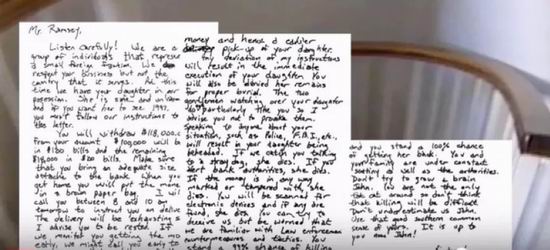 Mr. Ramsey,
Listen carefully! We are a
group of individuals that represent
a small foreign faction. We do
respect your business but not the
country that it serves. At this
time we have your daughter in our
possession. She is safe and unharmed
and if you want her to see 1997,
you must follow our instructions to
the letter.
You will withdraw $118,000.00
from your account. $100,000 will be
in $100 bills and the remaining
$18,000 in $20 bills. Make sure
that you bring an adequate size
attache to the bank. When you
get home you will put the money
in a brown paper bag. I will
call you between 8 and 10 am
tomorrow to instruct you on delivery.
The delivery will be exhausting so
I advise you to be rested. If
we monitor you getting the money
early, we might call you early to
money and hence a earlier
pick-up of your daughter.
Any deviation of my instructions
will result in the immediate
execution of your daughter. You
will also be denied her remains
for proper burial. The two
gentlemen watching over your daughter
do particularly like you so I
advise you not to provoke them.
Speaking to anyone about your
situation, such as Police, F.B.I., etc.,
will result in your daughter being
beheaded. If we catch you talking
to a stray dog, she dies. If you
alert bank authorities, she dies.
If the money is in any way
marked or tampered with, she
dies. You will be scanned for
electronic devices and if any are
found, she dies. You can try to
deceive us but be warned that
we are familiar with Law enforcement
countermeasures and tactics. You
stand a 99% chance of killing
and you stand a 100% chance
of getting her back. You and
your family are under constant
scrutiny as well as the authorities.
Don't try to grow a brain
John. You are not the only
fat cat around so don't think
that killing will be difficult.
Don't underestimate us John.
Use that good southern common
sense of yours. It is up to
you now John!